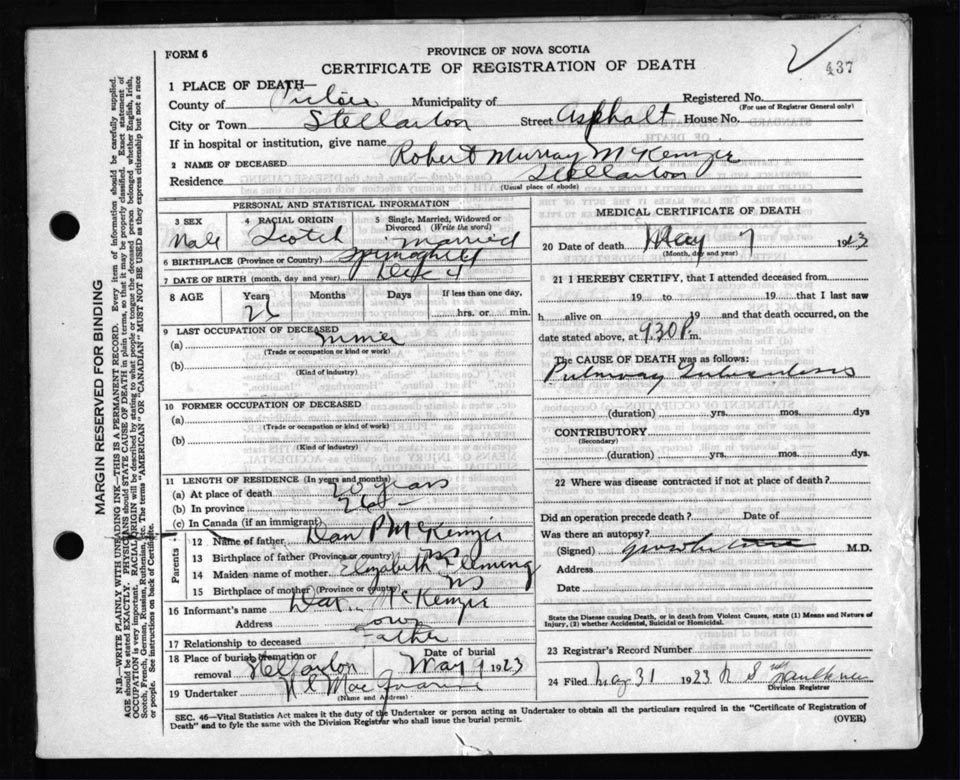 FORM 6
PROVINCE OF NOVA SCOTIA
CERTIFICATE OF REGISTRATION OF DEATH
437
1 PLACE OF DEATH—
County of Pictou Municipality of
Registered No.
(For use of Registrar General only)
City or Town Stellarton Street Asphalt House No.
If in hospital or institution, give name
2 NAME OF DECEASED Robert Murray McKenzie
Residence Stellarton
(Usual place of abode)
PERSONAL AND STATISTICAL INFORMATION
3 SEX Male
4 RACIAL ORIGIN Scotch
5 Single, Married, Widowed or Divorced (Write the word) Married
6 BIRTHPLACE (Province or Country) Springhill
7 DATE OF BIRTH (month, day and year) 4
8 AGE Years Months Days If less than one day,
26 hrs. or min.
9 LAST OCCUPATION OF DECEASED
(a) miner
(Trade or occupation or kind or work)
(b)
(Kind of industry)
10 FORMER OCCUPATION OF DECEASED
(a)
(Trade or occupation or kind of work)
(b)
(Kind of industry)
11 LENGTH OF RESIDENCE (In years and months)
(a) At place of death 20 years
(b) In province 26
(c) In Canada (if an immigrant)
Parents
12 Name of father Dan P McKenzie
13 Birthplace of father (Province or country) NS
14 Maiden name of mother Elizabeth Fleming
15 Birthplace of mother (Province or country) NS
16 Informant's name Dan McKenzie
Address Town
17 Relationship to deceased Father
18 Place of burial, cremation or removal Stellarton
Date of burial May 9 1923
19 Undertaker
(Name and Address)
MEDICAL CERTIFICATE OF DEATH
20 Date of death May 7 1923
(Month, day and year)
21 I HEREBY CERTIFY, that I attended deceased from
19 to 19 that I last saw
h alive on 19 and that death occurred, on
date stated above, at 9.30 P. m.
The CAUSE OF DEATH was as follows:
Pulmonary Tuberculosis
(duration) yrs. mos. dys
CONTRIBUTORY
(Secondary)
(duration) yrs. mos. dys.
22 Where was disease contracted if not at place of death?
Did an operation precede death? Date of
Was there an autopsy?
(Signed) M.D.
Address
Date
State the Disease causing Death, or in death from Violent Causes, state (1) Means and Nature of
Injury, (2) whether Accidental, Suicidal or Homicidal.
23 Registrar's Record Number
24 Filed May 31 1923
Division Registrar
SEC. 46—Vital Statistics Act makes it the duty of the Undertaker or person acting as Undertaker to obtain all the particulars required in the "Certificate of Registration of
Death" and to fyle the same with the Division Registrar who shall issue the burial permit.
(OVER)
MARGIN RESERVED FOR BINDING
N.B.—WRITE PLAINLY WITH UNFADING INK—THIS IS A PERMANENT RECORD. Every item of information should be carefully supplied.
AGE should be stated EXACTLY. PHYSICIANS should STATE CAUSE OF DEATH in plain terms, so that it may be properly classified. Exact statement of
OCCUPATION is very important. RACIAL ORIGIN will be described by stating to what people or tongue the deceased person belonged whether English, Irish,
Scotch, French, German, Russian, Ruthenian, etc. The terms "AMERICAN" OR "CANADIAN" MUST NOT BE USED as they express citizenship but not a race
or people. See instructions on back of Certificate.